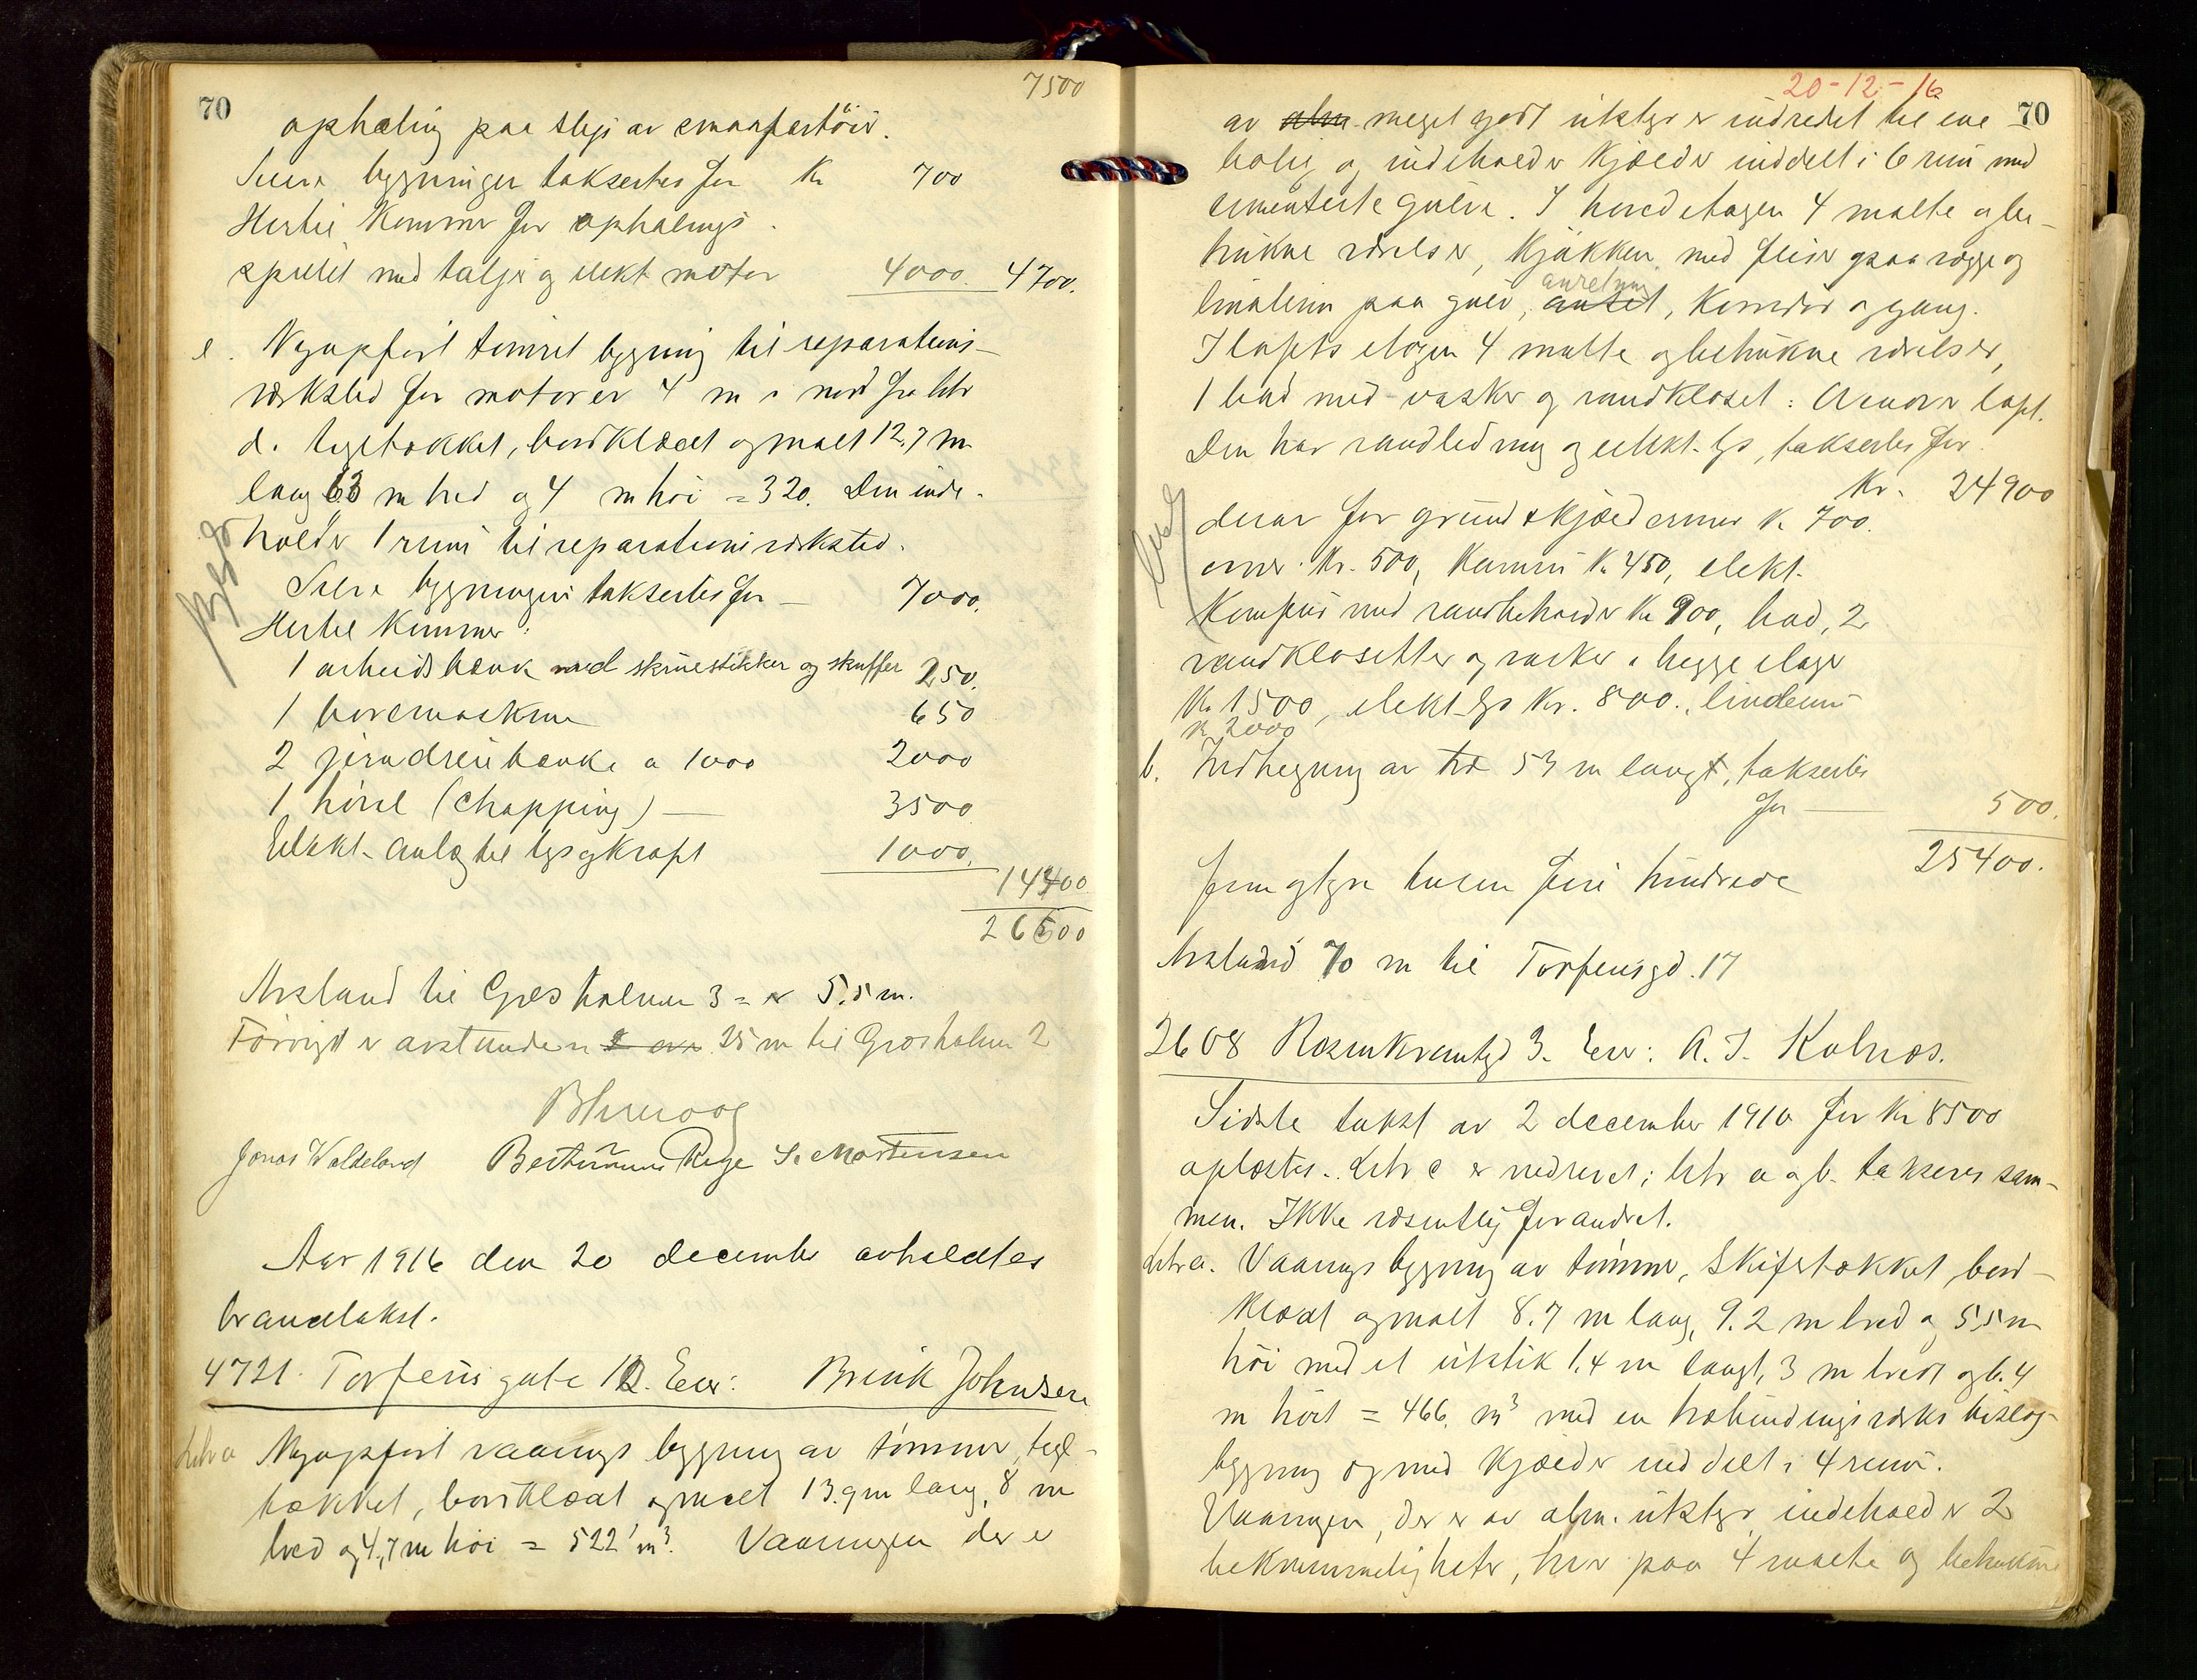 7500
70
ophaling paa slip av smaafartöier.
Selve bygningen takseres for Kr 700
Hertil kommer for ophalings
spillet med talje og elekt. motor 4000. 4700.
e. Nyopført tømret bygning til reparations-
verksted for motorer 4 m i nord fra litr
d. tegltækket, bordklædt og malt 12,7 m
lang 6.3 m bred og 4 m høi = 320. Den inde-
holder 1 rum til reparationsverksted.
Selve bygningen takseres for — 7000.
Hertil kommer:
1 arbeidsbænk med skruestikker og skuffer 250.
1 boremaskine 650
2 jerndreiebænke a 1000 2000
1 høvel (Chapping) — 3500
Elekt. anlæg til lys og kraft 1000.
14400
26600
Avstand til Græsholmen 3 = er 5.5 m.
Forøvrigt er avstanden 25 m til Græsholmen 2
Jonas Waldeland Berthinius Rege S. Mortensen
Aar 1916 den 20 december avholdtes
brandtakst.
4721. Torfæus gate 12. Eier: Brink Johnsen
Litr a Nyopført vaanings bygning av tømmer, tegl-
tækket, bordklædt og malt 13.9 m lang, 8 m
bred og 4,7 m høi = 522 m³. Vaaningen der er
20-12-16
70
av alm. meget godt utstyr er indredet til ene
bolig og indeholder kjælder inddelt i 6 rum med
cementerte gulve. I hovedetagen 4 malte og be-
trukne værelser, kjøkken med fliser paa vægge og
linoleum paa gulv, anset, anretning, korridor og gang.
I lofts etagen 4 malte og betrukne værelser,
1 bad med vasker og vandkloset: Ovenover loft.
Den har vandledning og elekt. lys, takseres for
Kr. 24900
derav for grund & kjældermur Kr 700.
ovner Kr. 500, kamin Kr 450, elekt.
komfur med vandbeholder Kr 900, bad, 2
vandklosetter og vasker i begge etager
Kr 1500, elekt. lys Kr. 800., linoleum
Kr 2000
b. Indhegning av træ 53 m langt, takseres
for — 500.
25400.
Fem og tyve tusen fire hundrede
Avstand 70 m til Torfæusgd. 17
2608 Rosenkrantzgd 3. Eier: A. J. Kolnæs.
Sidste takst av 2 december 1910 for Kr 8500
oplæstes. Litr c er nedrevet; litr a og b. takseres sam-
men. Ikke væsentlig forandret.
Litr a. Vaanings bygning av tømmer, skifertækket, bord-
klædt og malt 8.7 m lang, 9.2 m bred og 5,5 m
høi med et utstik 1.4 m langt, 3 m bredt og 6.4
m høit = 466. m³ med en træbindingsverks bislag-
bygning og med kjælder inddelt i 4 rum.
Vaaningen, der er av alm. utstyr indeholder 2
bekvemmeligheter, hver paa 4 malte og betrukne